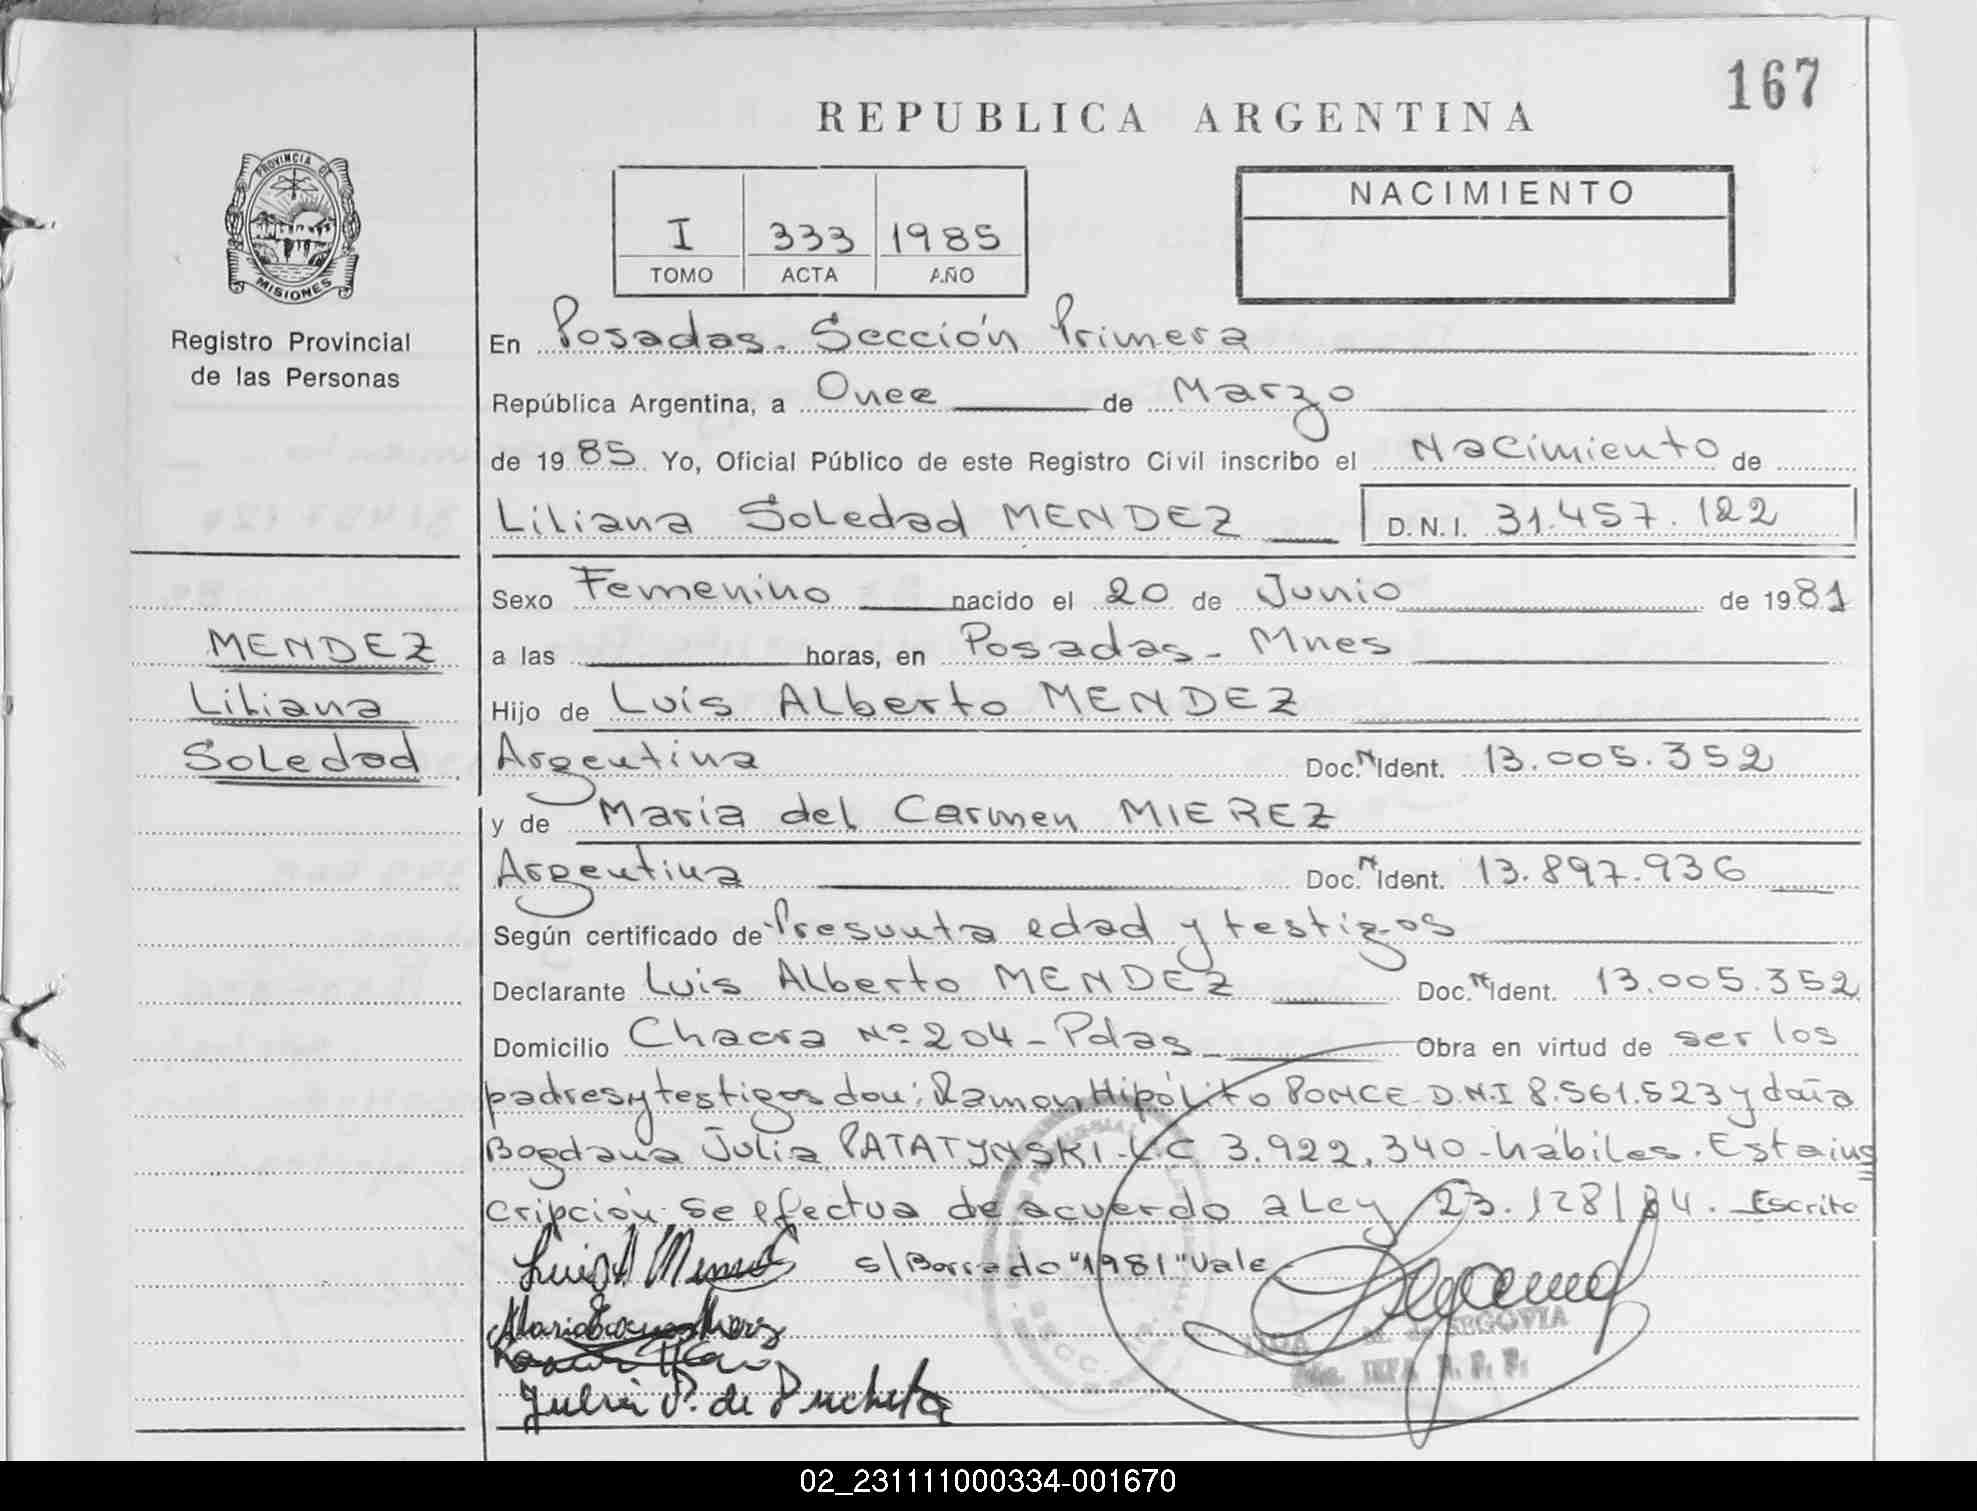 167
REPUBLICA ARGENTINA
PROVINCIA DE
MISIONES
Registro Provincial
de las Personas
I 333 1985
TOMO ACTA AÑO
NACIMIENTO
En Posadas. Sección Primera
República Argentina, a Once de Marzo
de 19 85 Yo, Oficial Público de este Registro Civil inscribo el Nacimiento de
Liliana Soledad MENDEZ D.N.I. 31.457.122
Sexo Femenino nacido el 20 de Junio de 19 81
MENDEZ
Liliana
Soledad
a las horas, en Posadas - Mnes
Hijo de Luis Alberto MENDEZ
Argentina Doc. N Ident. 13.005.352
y de Maria del Carmen MIEREZ
Argentina Doc. N Ident. 13.897.936
Según certificado de Presunta edad y testigos
Declarante Luis Alberto MENDEZ Doc. N Ident. 13.005.352
Domicilio Chacra Nº 204 - Pdas Obra en virtud de ser los
padres y testigos don: Ramon Hipólito PONCE D.N.I 8.561.523 y doña
Bogdana Julia PATATYNSKI - LC 3.922.340 - hábiles. Esta ins
cripción se efectua de acuerdo a Ley 23.128/84. Escrito
s/Borrado "1981" Vale
Luis A Mendez
Julia P. de Pucheta
SEGOVIA
02_231111000334-001670